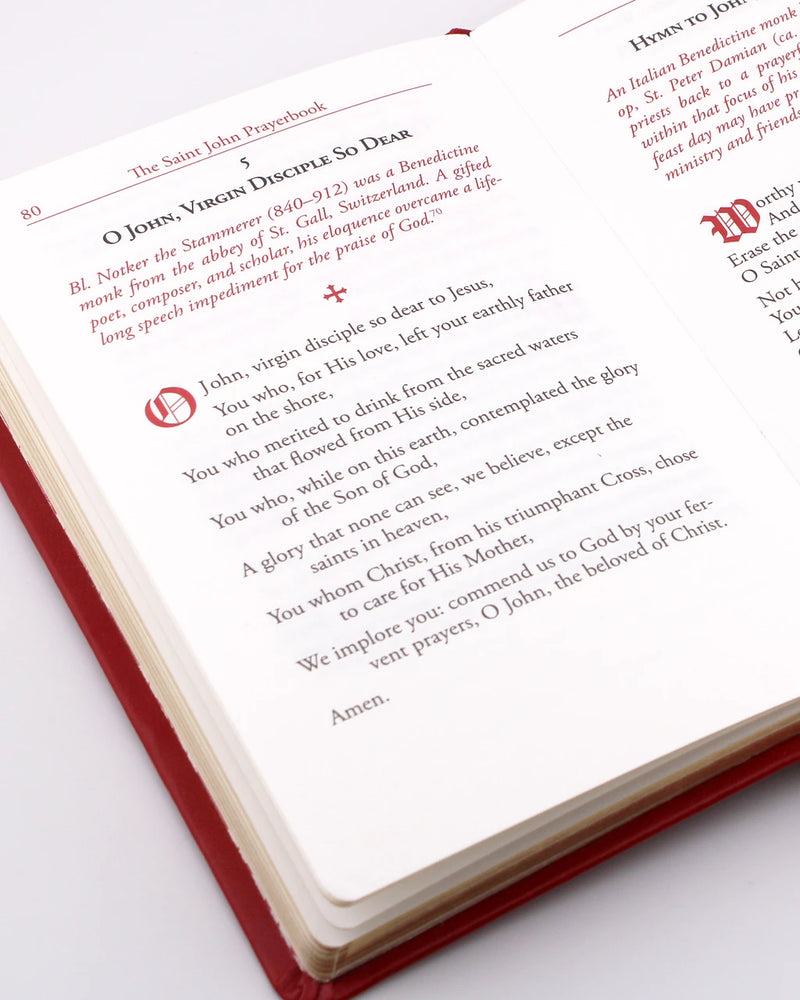 80
The Saint John Prayerbook
5
O John, Virgin Disciple So Dear
Bl. Notker the Stammerer (840–912) was a Benedictine
monk from the abbey of St. Gall, Switzerland. A gifted
poet, composer, and scholar, his eloquence overcame a life-
long speech impediment for the praise of God.70
O John, virgin disciple so dear to Jesus,
You who, for His love, left your earthly father
on the shore,
You who merited to drink from the sacred waters
that flowed from His side,
You who, while on this earth, contemplated the glory
of the Son of God,
A glory that none can see, we believe, except the
saints in heaven,
You whom Christ, from his triumphant Cross, chose
to care for His Mother,
We implore you: commend us to God by your fer-
vent prayers, O John, the beloved of Christ.
Amen.
Hymn to John
An Italian Benedictine monk
op, St. Peter Damian (ca.
priests back to a
within that focus of his
feast day may have
ministry and
Worthy
And
Erase the
O Saint
Not
You